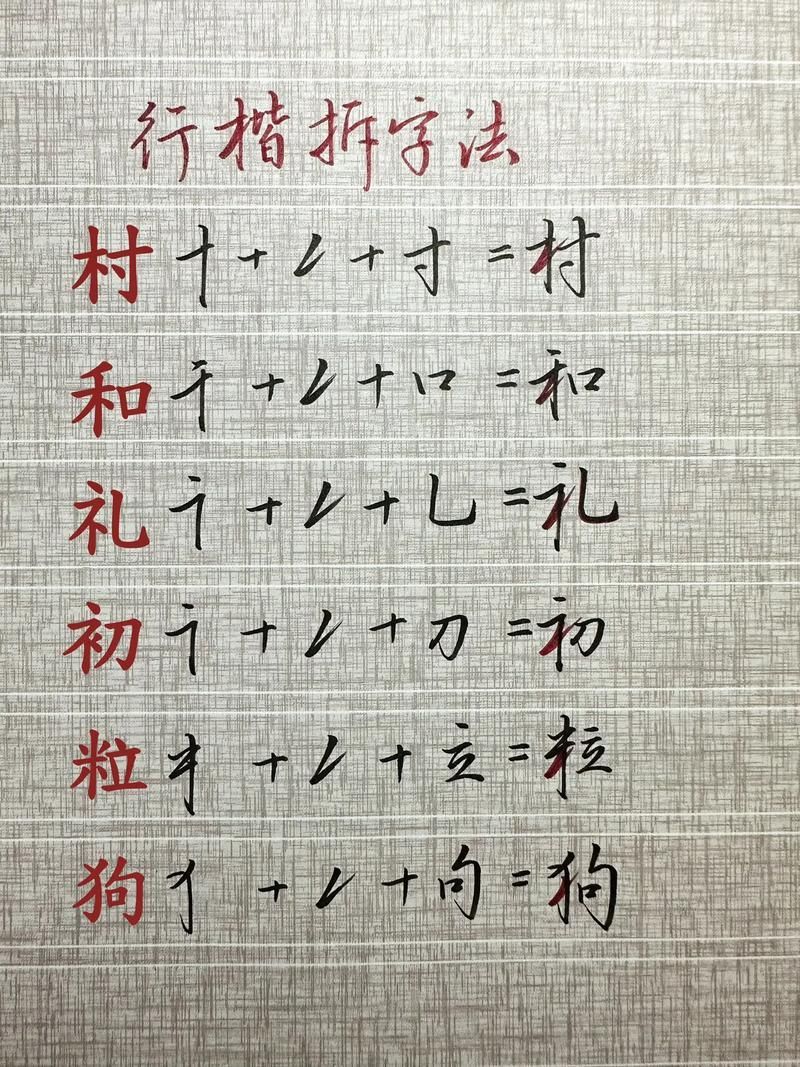 行楷拆字法
村 十 + ㇜ + 寸 = 村
和 千 + ㇜ + 口 = 和
礼 + ㇜ + 乚 = 礼
初 + ㇜ + 刀 = 初
粒 + ㇜ + 立 = 粒
狗 犭 + ㇜ + 句 = 狗